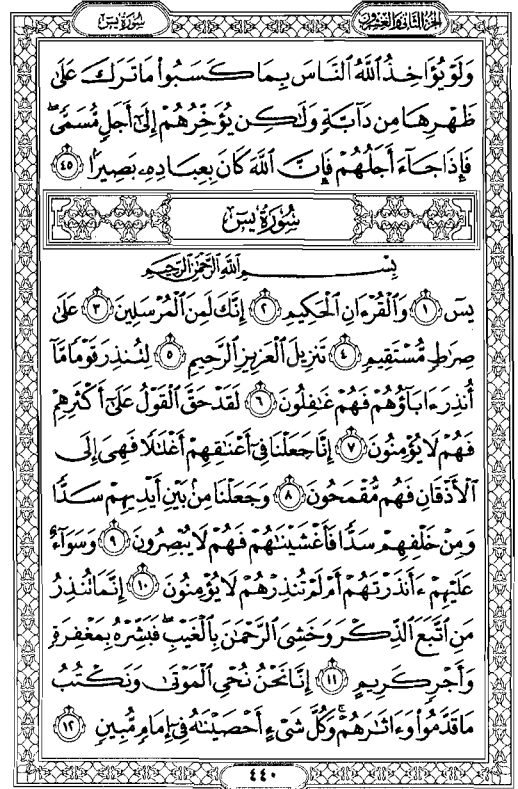 سُورَةُ يسٓ
الجزء الثاني والعشرون
وَلَوْ يُؤَاخِذُ ٱللَّهُ ٱلنَّاسَ بِمَا كَسَبُوا۟ مَا تَرَكَ عَلَىٰ
ظَهْرِهَا مِن دَآبَّةٍ وَلَٰكِن يُؤَخِّرُهُمْ إِلَىٰٓ أَجَلٍ مُّسَمًّى ۖ
فَإِذَا جَآءَ أَجَلُهُمْ فَإِنَّ ٱللَّهَ كَانَ بِعِبَادِهِۦ بَصِيرًۢا ٤٥
سُورَةُ يسٓ
بِسْمِ ٱللَّهِ ٱلرَّحْمَٰنِ ٱلرَّحِيمِ
يسٓ ١ وَٱلْقُرْءَانِ ٱلْحَكِيمِ ٢ إِنَّكَ لَمِنَ ٱلْمُرْسَلِينَ ٣ عَلَىٰ
صِرَٰطٍ مُّسْتَقِيمٍ ٤ تَنزِيلَ ٱلْعَزِيزِ ٱلرَّحِيمِ ٥ لِتُنذِرَ قَوْمًا مَّآ
أُنذِرَ ءَابَآؤُهُمْ فَهُمْ غَٰفِلُونَ ٦ لَقَدْ حَقَّ ٱلْقَوْلُ عَلَىٰٓ أَكْثَرِهِمْ
فَهُمْ لَا يُؤْمِنُونَ ٧ إِنَّا جَعَلْنَا فِىٓ أَعْنَٰقِهِمْ أَغْلَٰلًا فَهِىَ إِلَى
ٱلْأَذْقَانِ فَهُم مُّقْمَحُونَ ٨ وَجَعَلْنَا مِنۢ بَيْنِ أَيْدِيهِمْ سَدًّا
وَمِنْ خَلْفِهِمْ سَدًّا فَأَغْشَيْنَٰهُمْ فَهُمْ لَا يُبْصِرُونَ ٩ وَسَوَآءٌ
عَلَيْهِمْ ءَأَنذَرْتَهُمْ أَمْ لَمْ تُنذِرْهُمْ لَا يُؤْمِنُونَ ١٠ إِنَّمَا تُنذِرُ
مَنِ ٱتَّبَعَ ٱلذِّكْرَ وَخَشِىَ ٱلرَّحْمَٰنَ بِٱلْغَيْبِ ۖ فَبَشِّرْهُ بِمَغْفِرَةٍ
وَأَجْرٍ كَرِيمٍ ١١ إِنَّا نَحْنُ نُحْىِ ٱلْمَوْتَىٰ وَنَكْتُبُ
مَا قَدَّمُوا۟ وَءَاثَٰرَهُمْ ۚ وَكُلَّ شَىْءٍ أَحْصَيْنَٰهُ فِىٓ إِمَامٍ مُّبِينٍ ١٢
٤٤٠